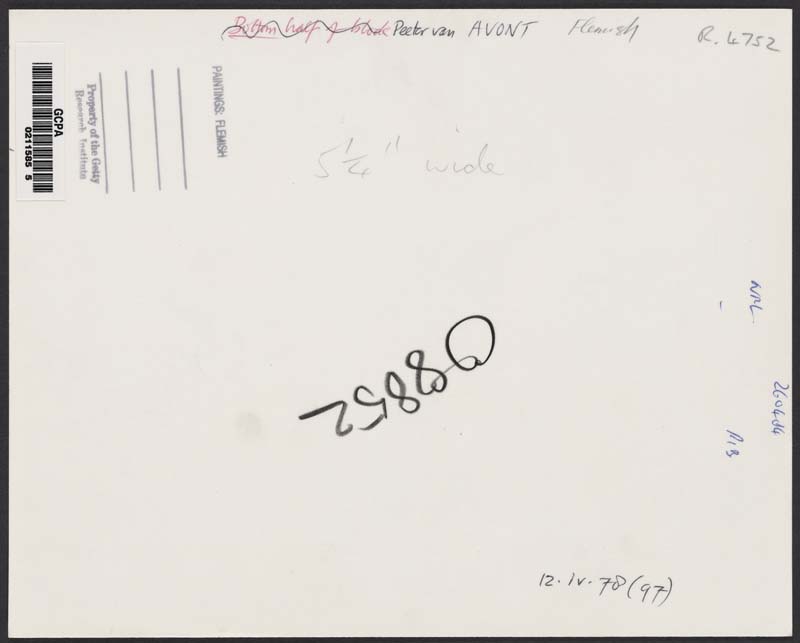 Bottom half of block Peeter van AVONT Flemish R. 4752
GCPA
0211585 5
Property of the Getty
Research Institute
PAINTINGS: FLEMISH
5 1/4" wide
NPL
260404
PIB
12·iv·78 (97)